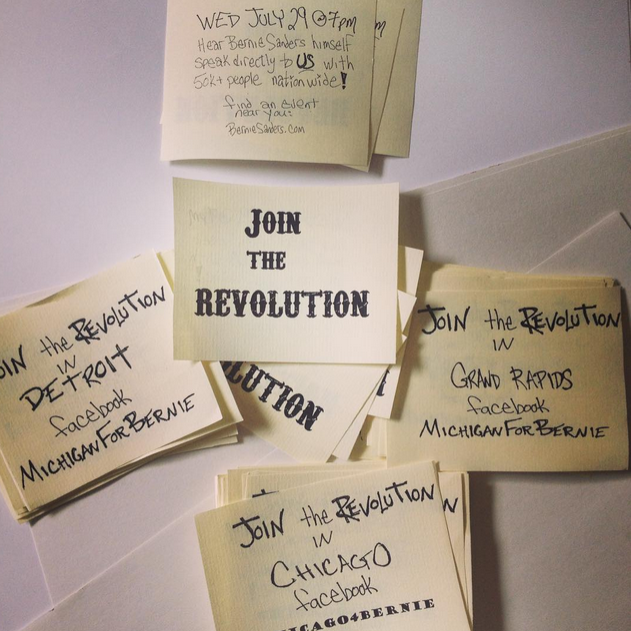 WED JULY 29 @ 7pm
Hear Bernie Sanders himself
speak directly to US with
50k+ people nationwide!
find an event
near you:
BernieSanders.com
m
JOIN
THE
REVOLUTION
LUTION
JOIN the REVOLUTION
IN
DETROIT
facebook
MICHIGANFORBERNIE
JOIN the REVOLUTION
IN
GRAND RAPIDS
facebook
MICHIGANFORBERNIE
JOIN the REVOLUTION
IN
CHICAGO
facebook
ICAGO4BERNIE
N